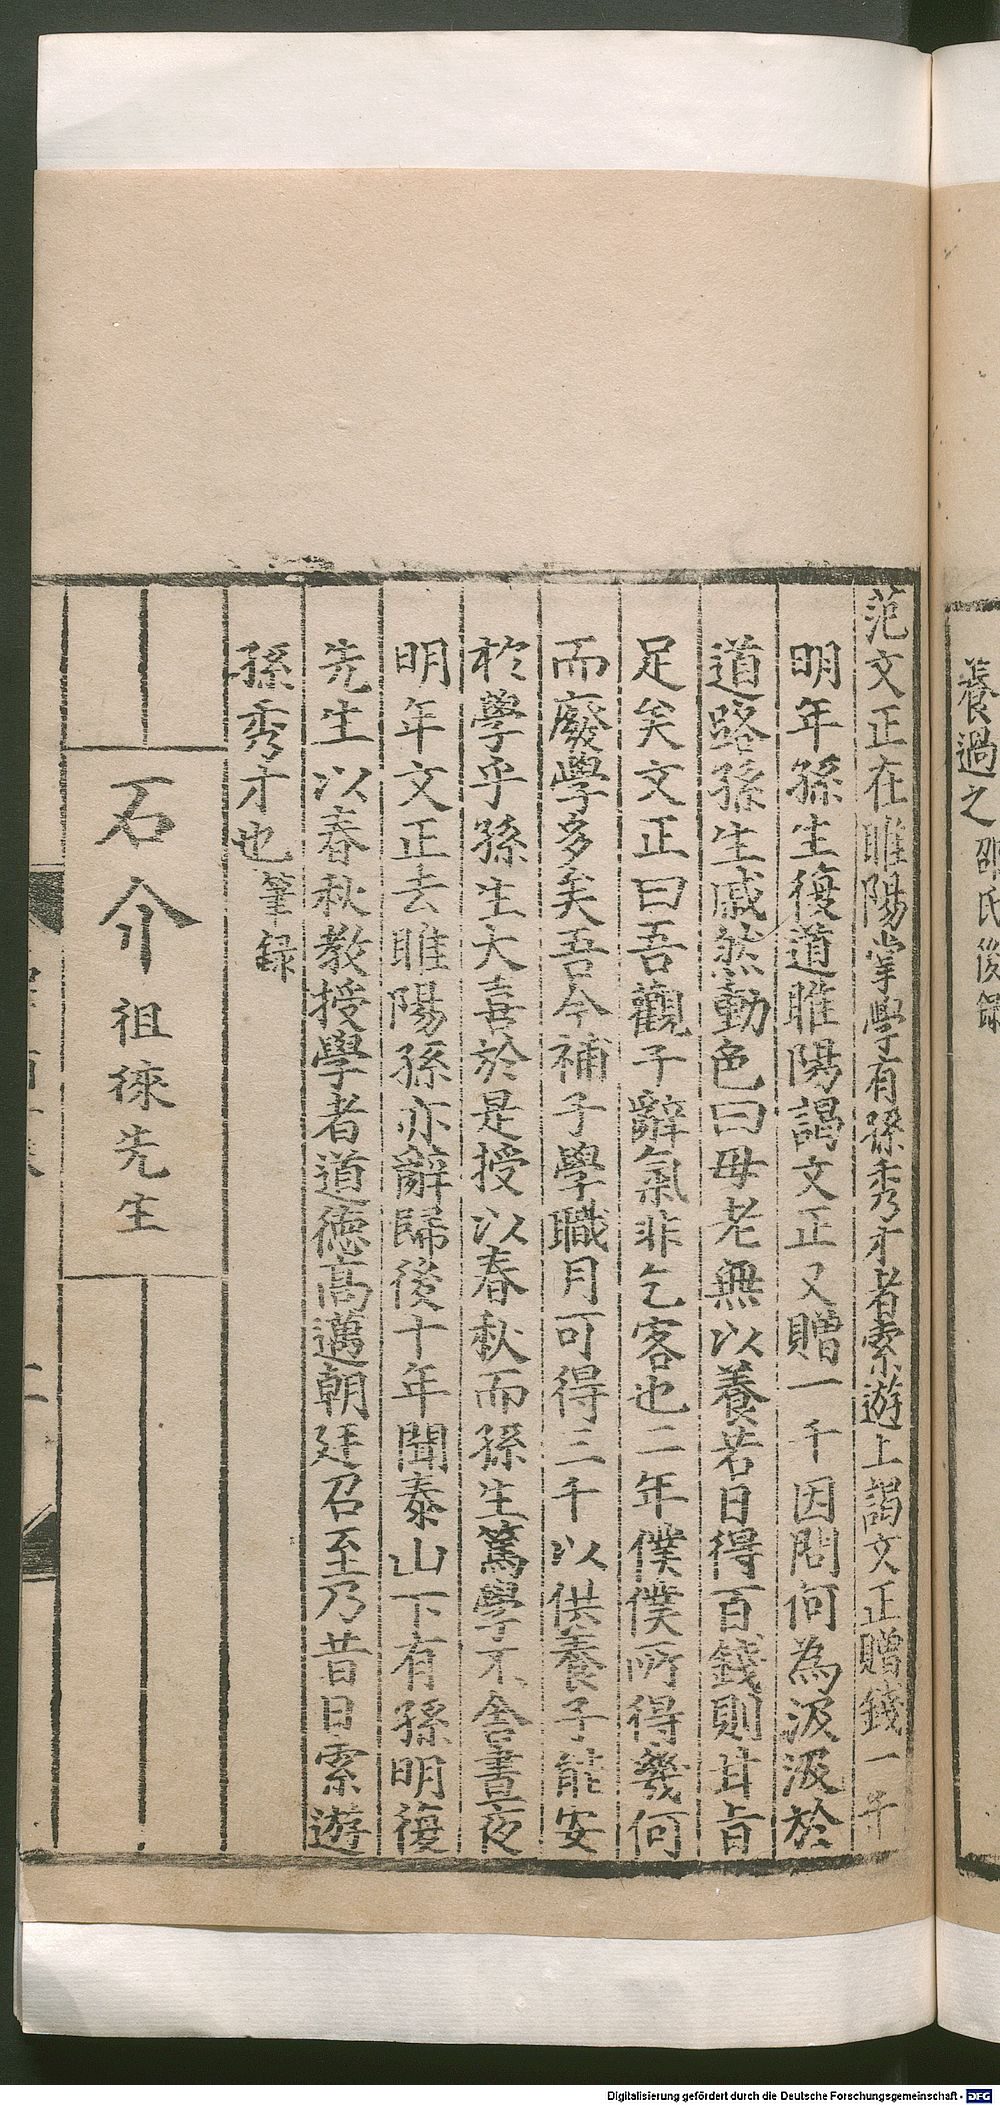 養過之 邵氏後錄
范文正在睢陽掌學有孫秀才者索遊上謁文正贈錢一千
明年孫生復道睢陽謁文正又贈一千因問何為汲汲於
道路孫生戚然動色曰母老無以養若日得百錢則甘旨
足矣文正曰吾觀子辭氣非乞客也二年僕僕所得幾何
而廢學多矣吾今補子學職月可得三千以供養子能安
於學乎孫生大喜於是授以春秋而孫生篤學不舍晝夜
明年文正去睢陽孫亦辭歸後十年聞泰山下有孫明復
先生以春秋教授學者道德高邁朝廷召至乃昔日索遊
孫秀才也 筆録
石介 祖徠先生
二
Digitalisierung gefördert durch die Deutsche Forschungsgemeinschaft - DFG